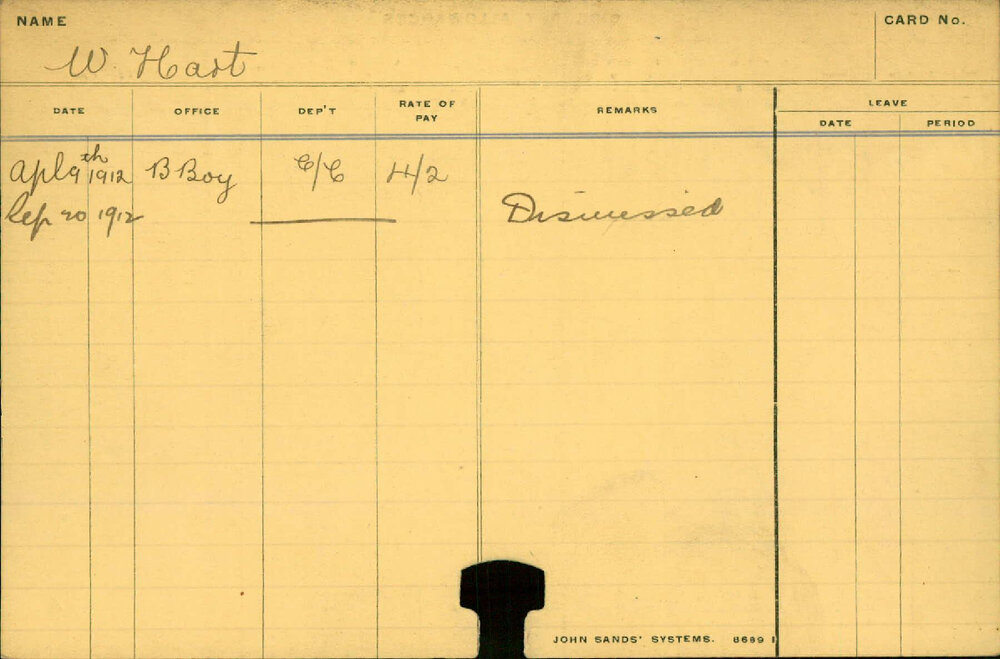 NAME
CARD No.
W. Hart
DATE OFFICE DEP'T RATE OF PAY REMARKS LEAVE
DATE PERIOD
Apl 9th 1912 B Boy C/C 4/2
Sep 20 1912 Dismissed
JOHN SANDS' SYSTEMS. 8689